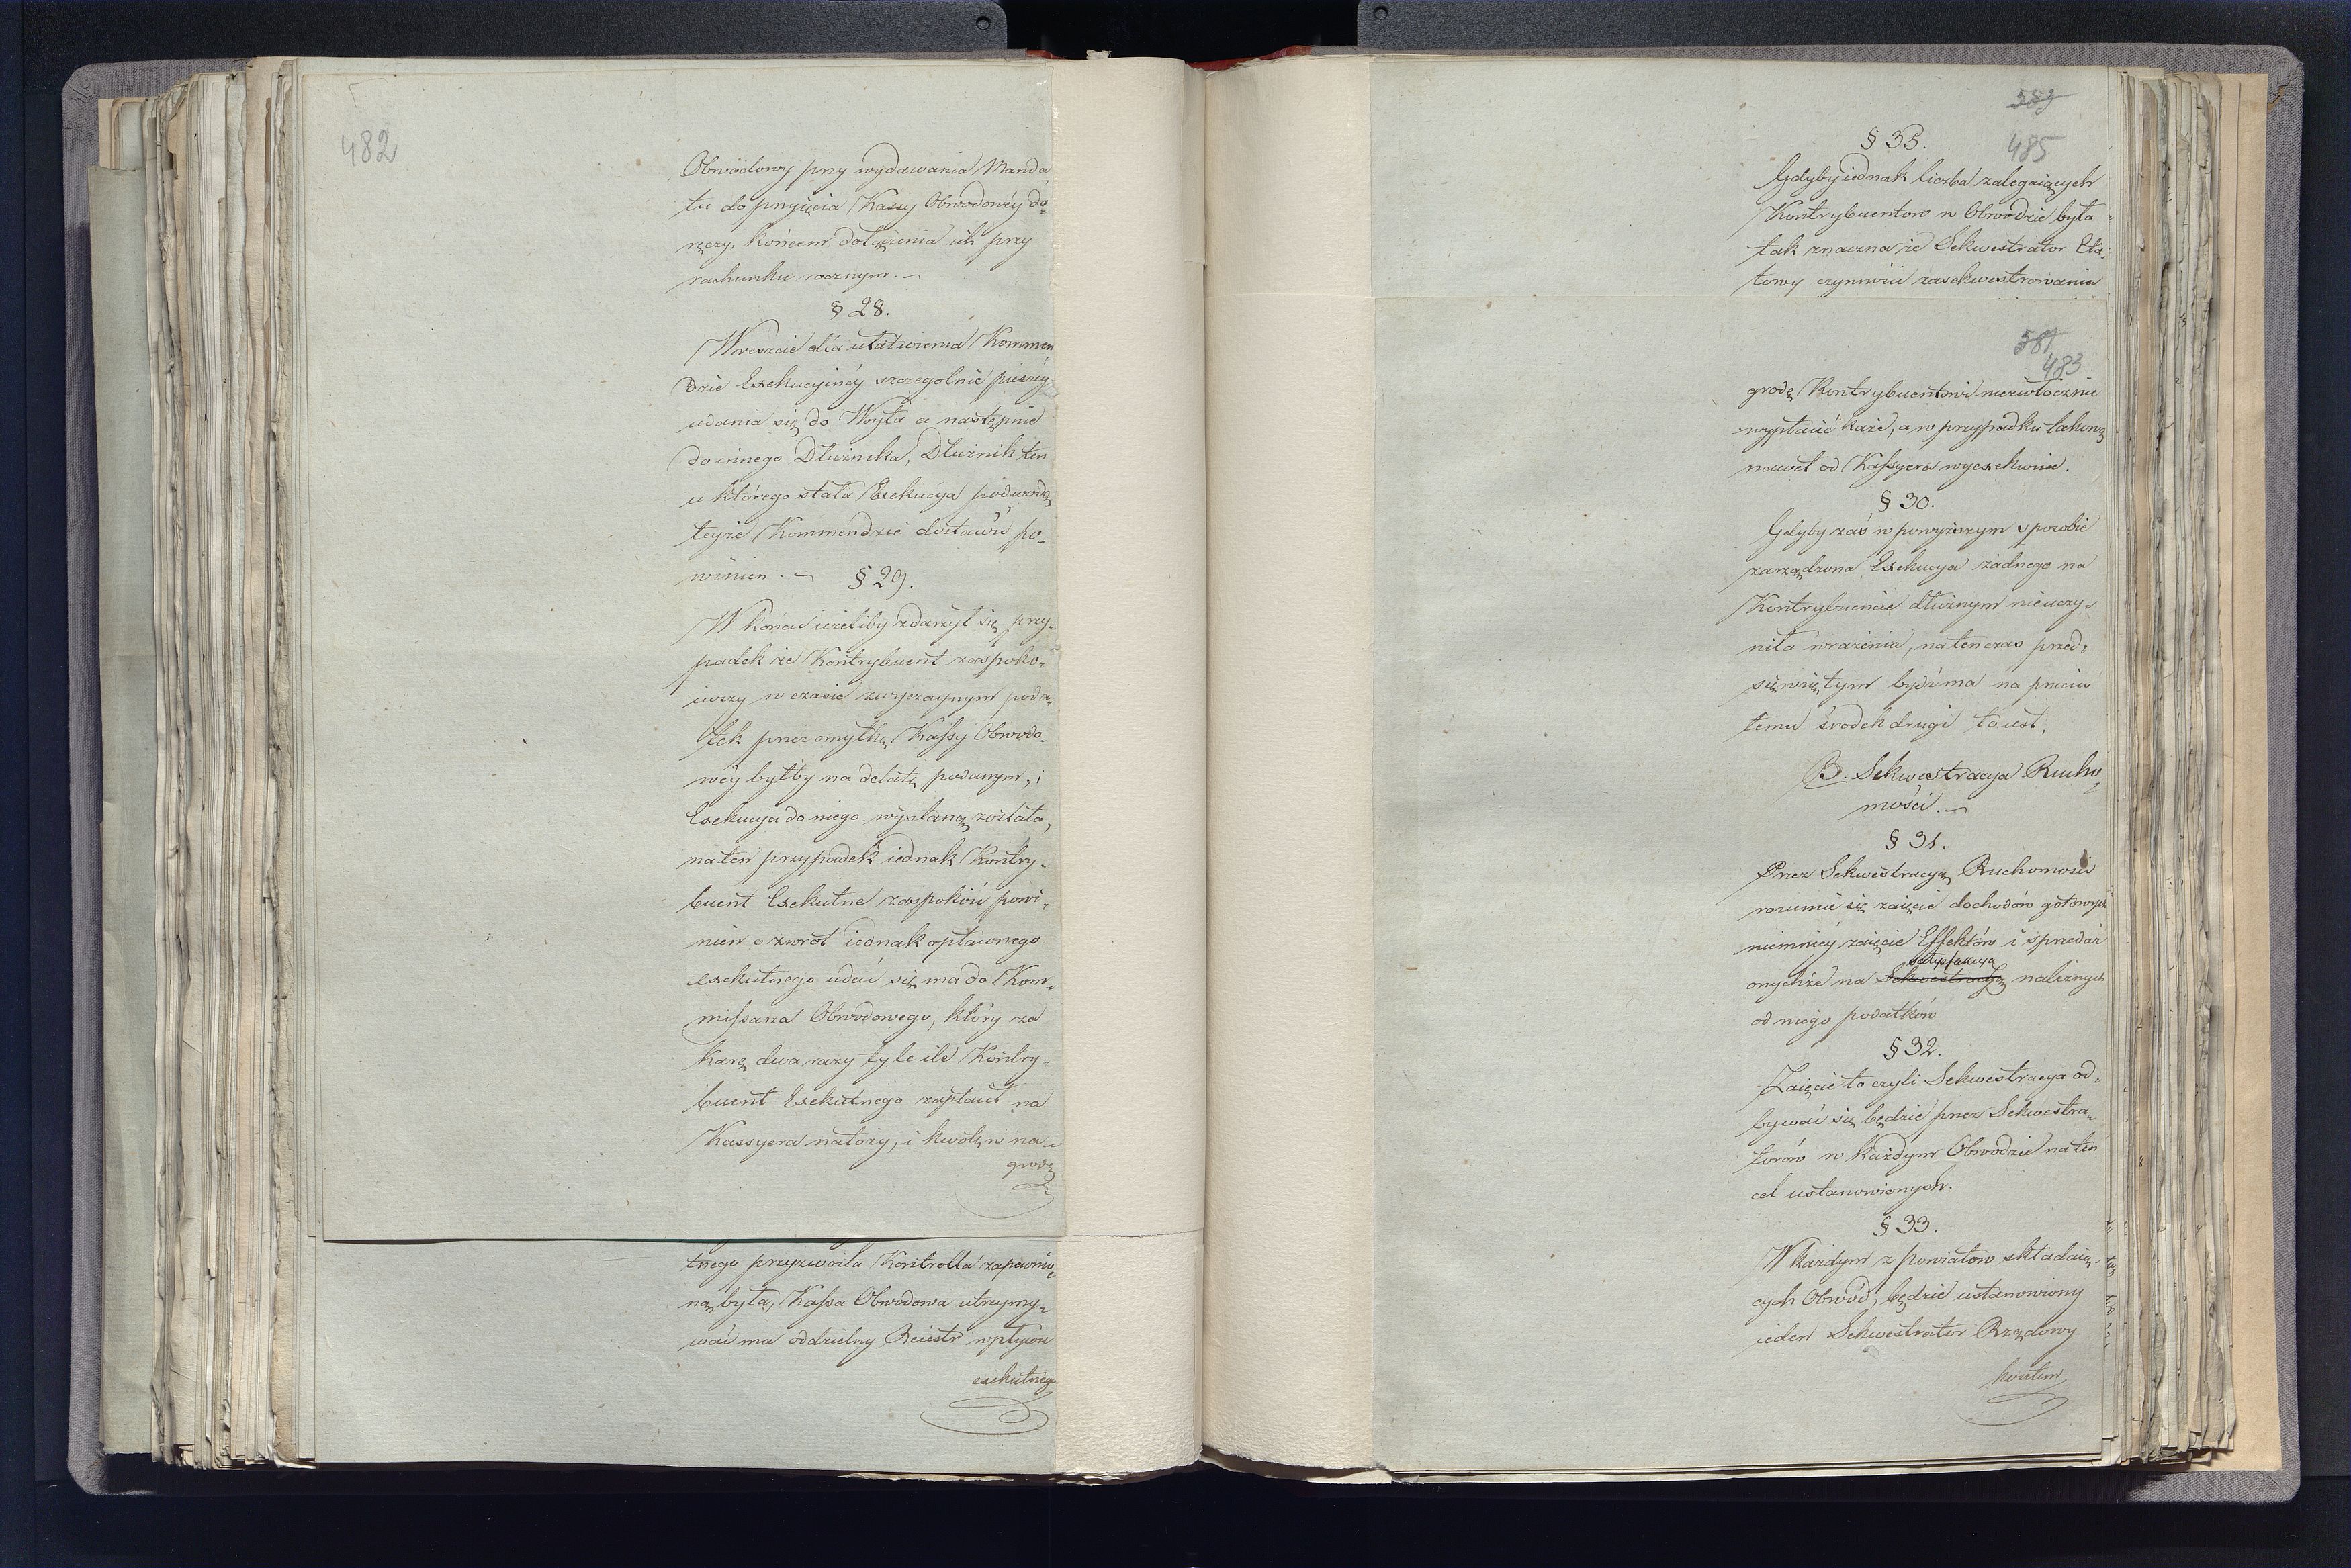 482
Obwodowy przy wydawania Manda
tu do przyięcia Kassy Obwodowéy do-
ręczy, końcem dołączenia ich przy
rachunku rocznym. —
§ 28.
Wreszcie dla ułatwienia Kommen
dzie Exekucyinéy szczegolnie pieszéy
udania się do Woyta a następnie
do innego Dłużnika, Dłużnik ten
u którego stała Exekucya podwodę
teyże Kommendzie dostawić po-
winien. — § 29.
W końcu ieżeliby zdarzył się przy-
padek że Kontrybuent zaspoko-
iwszy w czasie zwyczaynym poda-
tek przez omyłkę Kassy Obwodo-
wéy byłby na delatę podanym, i
Exekucya do niego wysłaną została,
na ten przypadek iednak Kontry-
buent Exekutne zaspokóić powi-
nien o zwrót iednak opłaconego
exekutnego udać się ma do Kom-
missarza Obwodowego, który za
karę dwa razy tyle ile Kontry-
buent Exekutnego zapłacił na
Kassyera nałoży, i kwotę w na-
grodę
tnego przyzwoita Kontrolla zapewnio
ną była, Kassa Obwodowa utrzymy-
wać ma oddzielny Reiestr wpływu
exekutnego
583
485
§ 35.
Gdyby iednak liczba zalegaiących
Kontrybuentow w Obwodzie była
tak znaczna że Sekwestrator Eta-
towy czynności zasekwestrowania
581
483
grodę Kontrybuentowi niezwłocznie
wypłacić każe, a w przypadku takową
nawet od Kassyera wyexekwuie.
§ 30.
Gdyby zaś w powyższym sposobie
zarządzona Exekucya żadnego na
Kontrybuencie dłużnym nie uczy-
niła wrażenia, natenczas przed-
sięwziętym bydź ma na przeciw
temu środek drugi to iest,
B. Sekwestracya Rucho
mości. —
§ 31.
Przez Sekwestracyą Ruchomosci
rozumie się zaięcie dochodów gotowych
niemniéy zaięcie Effektów i sprzedaż
satysfakcya
onychże na Sekwestracyą należnych
od niego podatków
§ 32.
Zaięcie to czyli Sekwestracya od-
bywać się będzie przez Sekwestra-
torów w każdym Obwodzie na ten
cel ustanowionych.
§ 33.
W każdym z powiatow składaią-
cych Obwód, będzie ustanowiony
ieden Sekwestrator Rządowy
kosztem